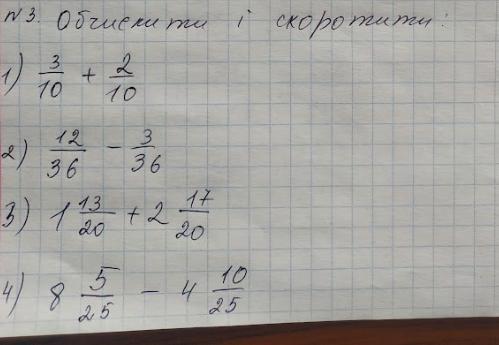 №3. Обчислити і скоротити:
1) 3/10 + 2/10
2) 12/36 - 3/36
3) 1 13/20 + 2 17/20
4) 8 5/25 - 4 10/25